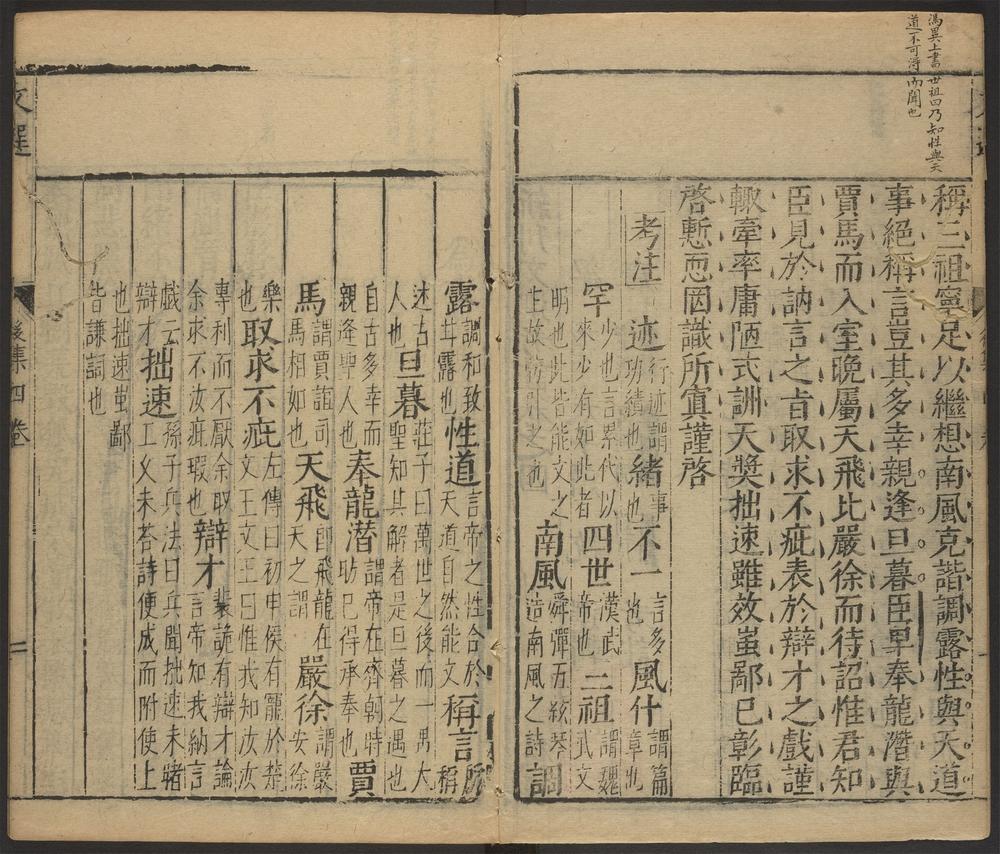 馮異上書世祖曰乃知性與天
道不可得而聞也
稱三祖寧足以繼想南風克諧調露性與天道
事絕稱言豈其多幸親逢旦暮臣早奉龍潛與
賈馬而入室晚屬天飛比嚴徐而待詔惟君知
臣見於訥言之旨取求不疵表於辯才之戲謹
輙牽率庸陋式訓天奬拙速雖效蚩鄙已彰臨
啓慙恧罔識所寘謹啓
考注
迹行迹謂功績也緒事也不一言多也風什謂篇章也
罕少也言累代以來少有如此者四世漢武帝也三祖謂魏武文
明也此皆能文之主故特引之也南風舜彈五絃琴造南風之詩調
露調和致甘露也性道言帝之性合於天道自然能文稱言稱所
述古人也旦暮莊子曰萬世之後而一遇大聖知其解者是旦暮之遇也
自古多幸而親逢聖人也奉龍潛謂帝在齊朝時昉已得承奉也賈
馬謂賈誼司馬相如也天飛即飛龍在天之謂嚴徐謂嚴安徐
樂也取求不疵左傳曰初申侯有寵於楚文王文王曰惟我知汝汝
專利而不厭余取余求不汝疵瑕也辯才裴詭有辯才論
戲云言帝知我納言辯才拙速孫子兵法曰兵聞拙速未睹工文未荅詩便成而附使上
也拙速蚩鄙
皆謙詞也
文選
後集四卷
二